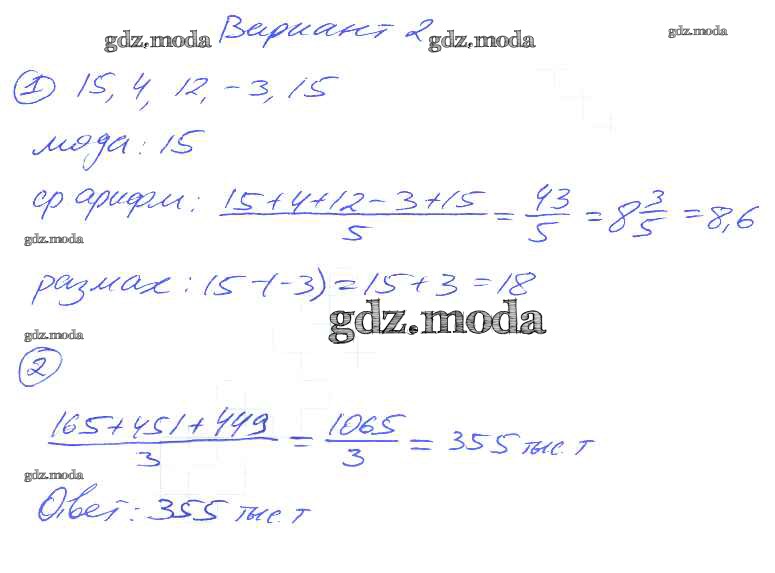 Вариант 2
gdz.moda gdz.moda gdz.moda
1 15, 4, 12, -3, 15
мода: 15
ср арифм: (15+4+12-3+15)/5 = 43/5 = 8 3/5 = 8,6
gdz.moda
размах: 15-(-3) = 15+3 = 18
gdz.moda
gdz.moda
2
(165+451+449)/3 = 1065/3 = 355 тыс. т
gdz.moda
Ответ: 355 тыс. т